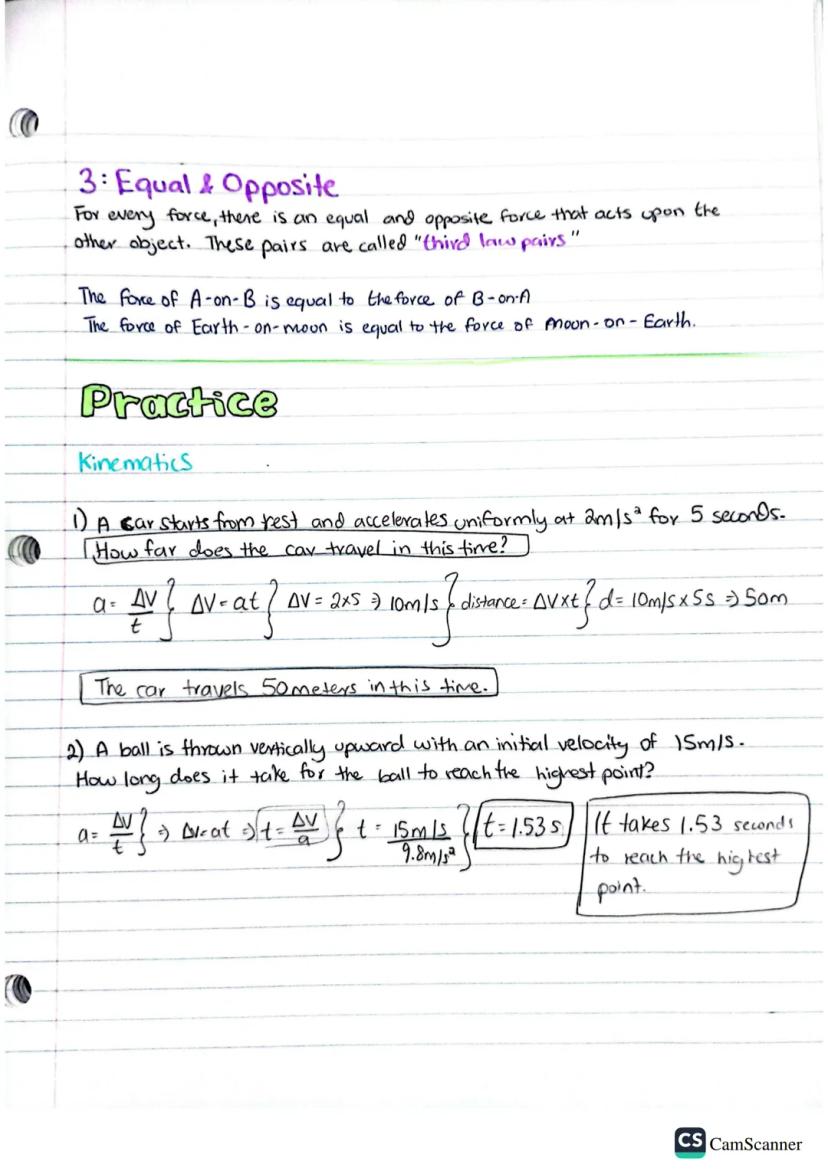 3: Equal & Opposite
For every force, there is an equal and opposite force that acts upon the
other object. These pairs are called "third law pairs"
The force of A-on-B is equal to the force of B-on-A
The force of Earth-on-moon is equal to the force of Moon-on-Earth.
Practice
Kinematics
1) A car starts from rest and accelerates uniformly at 2m/s² for 5 seconds.
How far does the car travel in this time?
a = ΔV/t } ΔV = at } ΔV = 2×5 ⇒ 10m/s } distance = ΔV×t } d = 10m/s × 5s ⇒ 50m
The car travels 50 meters in this time.
2) A ball is thrown vertically upward with an initial velocity of 15m/s.
How long does it take for the ball to reach the highest point?
a = ΔV/t } ⇒ ΔV = at ⇒ t = ΔV/a } t = 15m/s / 9.8m/s² } t = 1.53 s
It takes 1.53 seconds
to reach the highest
point.
CS CamScanner